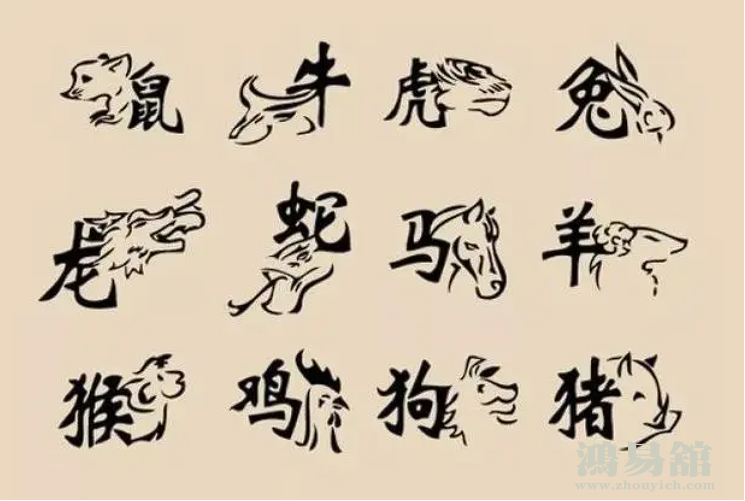 鼠 牛 虎 兔
龙 蛇 马 羊
猴 鸡 狗 猪
鴻易舘
www.zhouyich.com